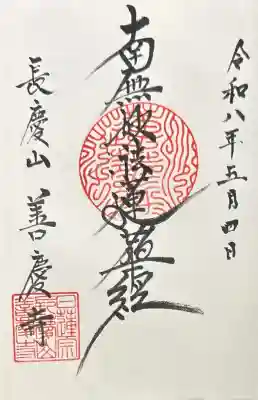 令和八年五月四日
南無妙法蓮華経
長慶山 善慶寺